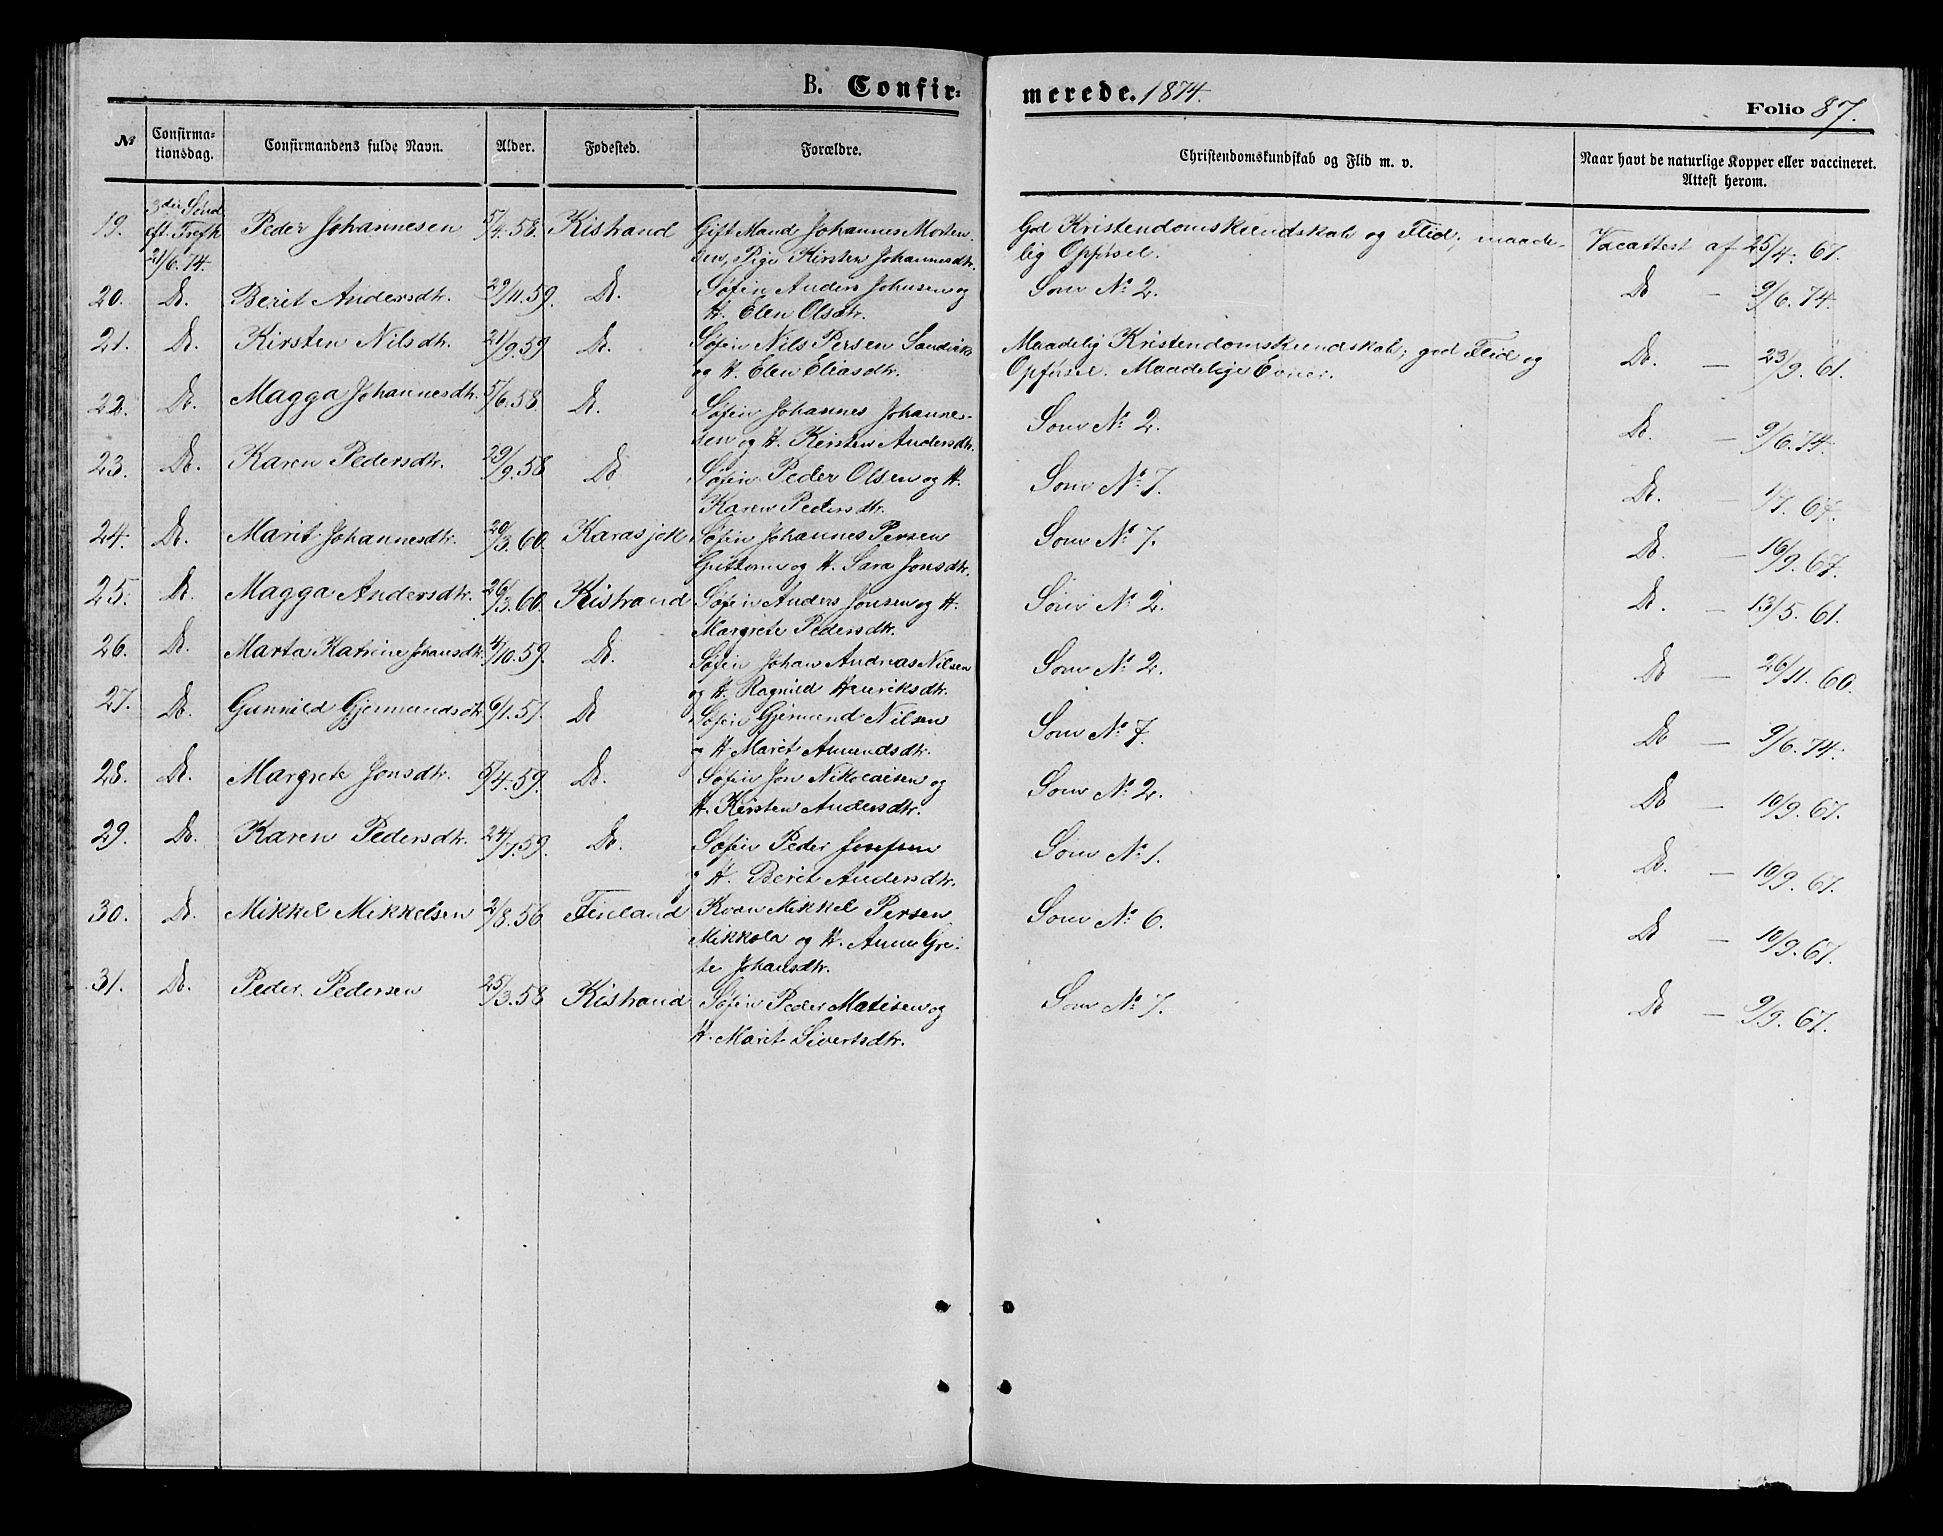 B. Confir-
merede. 1874.
Folio 87.
№
Confirma-
tionsdag.
Confirmandens fulde Navn.
Alder.
Fødested.
Forældre.
Christendomskundskab og Flid m. v.
Naar havt de naturlige Kopper eller vaccineret.
Attest herom.
19. 3die Sønd. Peder Johannesen 5/4.58. Kistrand Gift Mand Johannes Morten- God Kristendomskundskab og Flid. maade- Vacattest af 25/4. 67.
eft. Trefh. sen, Pige Kirsten Johannesdtr. lig Opførsel.
21/6.74.
20. Do. Berit Andersdtr. 29/11.59. Do. Søfin Anders Johnsen og Som No 2. Do — 9/6.74.
H. Elen Olsdtr.
21. Do. Kirsten Nilsdtr. 21/9.59 Do. Søfin Nils Persen Sandvik Maadelig Kristendomskundskab; god Flid og Do. — 23/9.61.
og H. Elen Eliasdtr. Opførsel. Maadelige Evner.
22. Do. Magga Johannesdtr. 5/6.58 Do. Søfin Johannes Johannes- Som No 2. Do. — 9/6.74.
sen og H. Kirsten Andersdtr.
23. Do. Karen Pedersdtr. 29/9.58 Do Søfin Peder Olsen og H. Som No 7. Do. — 1/7.67.
Karen Pedersdtr.
24. Do. Marit Johannesdtr. 20/3.60. Karasjok Søfin Johannes Persen Som No 7. Do. — 16/9.67.
Guttorm og H. Sara Jonsdtr.
25. Do. Magga Andersdtr. 26/3.60. Kistrand Søfin Anders Jonsen og H. Som No 2. Do. — 13/5.61.
Margrete Pedersdtr.
26. Do. Marta Katrine Johansdtr. 4/10.59. Do. Søfin Johan Andreas Nilsen Som No 2. Do — 26/11.60.
og H. Ragnild Henriksdtr.
27. Do. Gunnild Gjermundsdtr. 6/1.57. Do Søfin Gjermund Nilsen Som No 7. Do — 9/6.74.
og H. Marit Amundsdtr.
28. Do. Margrete Jonsdtr. 5/4.59. Do. Søfin Jon Nikolaisen og Som No 2. Do — 10/9.67.
H. Kirsten Andersdtr.
29. Do. Karen Pedersdtr. 24/7.59. Do. Søfin Peder Josefsen Som No 1. Do. — 10/9.67.
og H. Berit Andersdtr.
30. Do. Mikkel Mikkelsen 2/8.56 Finland Kvæn Mikkel Persen Som No 6. Do — 10/9.67.
Mikkola og H. Anna Gre-
te Johansdtr.
31. Do. Peder Pedersen 25/3.58 Kistrand Søfin Peder Matisen og Som No 7. Do — 9/9.67.
H. Marit Sivertsdtr.